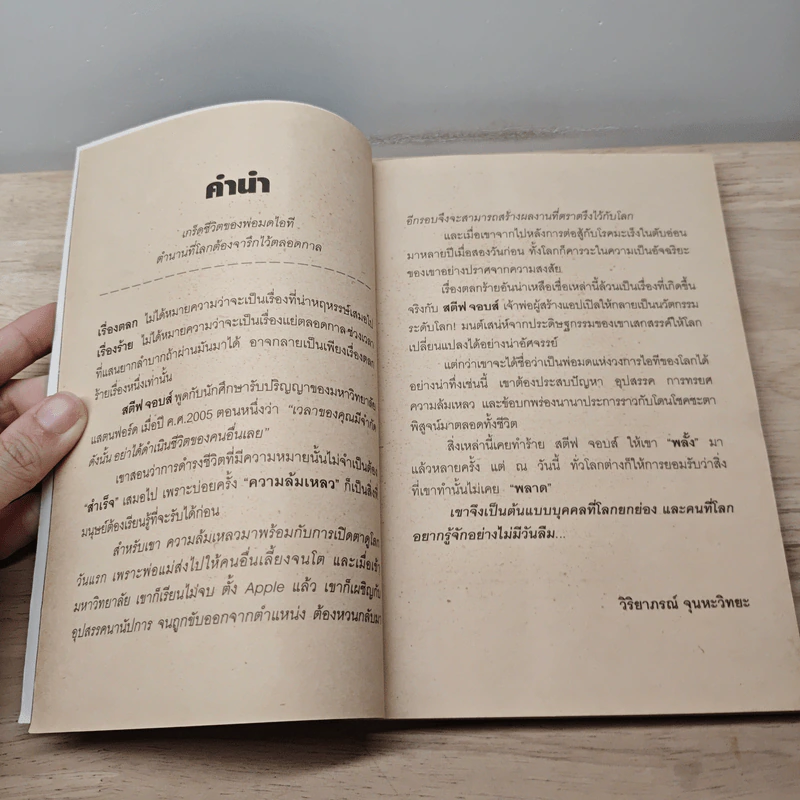 คำนำ
เกร็ดชีวิตของพ่อมดไอที
ตำนานที่โลกต้องจารึกไว้ตลอดกาล
เรื่องตลก ไม่ได้หมายความว่าจะเป็นเรื่องที่น่าหฤหรรษ์เสมอไป
เรื่องร้าย ไม่ได้หมายความว่าจะเป็นเรื่องแย่ตลอดกาล ช่วงเวลา
ที่แสนยากลำบากถ้าผ่านมันมาได้ อาจกลายเป็นเพียงเรื่องตลก
ร้ายเรื่องหนึ่งเท่านั้น
สตีฟ จอบส์ พูดกับนักศึกษารับปริญญาของมหาวิทยาลัย
แสตนฟอร์ด เมื่อปี ค.ศ.2005 ตอนหนึ่งว่า “เวลาของคุณมีจำกัด
ดังนั้น อย่าได้ดำเนินชีวิตของคนอื่นเลย”
เขาสอนว่าการดำรงชีวิตที่มีความหมายนั้นไม่จำเป็นต้อง
“สำเร็จ” เสมอไป เพราะบ่อยครั้ง “ความล้มเหลว” ก็เป็นสิ่งที่
มนุษย์ต้องเรียนรู้ที่จะรับได้ก่อน
สำหรับเขา ความล้มเหลวมาพร้อมกับการเปิดตาดูโลก
วันแรก เพราะพ่อแม่ส่งไปให้คนอื่นเลี้ยงจนโต และเมื่อเข้า
มหาวิทยาลัย เขาก็เรียนไม่จบ ตั้ง Apple แล้ว เขาก็เผชิญกับ
อุปสรรคนานัปการ จนถูกขับออกจากตำแหน่ง ต้องหวนกลับมา
อีกรอบจึงจะสามารถสร้างผลงานที่ตราตรึงไว้กับโลก
และเมื่อเขาจากไปหลังการต่อสู้กับโรคมะเร็งในตับอ่อน
มาหลายปีเมื่อสองวันก่อน ทั้งโลกก็คารวะในความเป็นอัจฉริยะ
ของเขาอย่างปราศจากความสงสัย
เรื่องตลกร้ายอันน่าเหลือเชื่อเหล่านี้ล้วนเป็นเรื่องที่เกิดขึ้น
จริงกับ สตีฟ จอบส์ เจ้าพ่อผู้สร้างแอปเปิลให้กลายเป็นนวัตกรรม
ระดับโลก! มนต์เสน่ห์จากประดิษฐกรรมของเขาเสกสรรค์ให้โลก
เปลี่ยนแปลงได้อย่างน่าอัศจรรย์
แต่กว่าเขาจะได้ชื่อว่าเป็นพ่อมดแห่งวงการไอทีของโลกได้
อย่างน่าทึ่งเช่นนี้ เขาต้องประสบปัญหา อุปสรรค การทรยศ
ความล้มเหลว และข้อบกพร่องนานาประการราวกับโดนโชคชะตา
พิสูจน์มาตลอดทั้งชีวิต
สิ่งเหล่านี้เคยทำร้าย สตีฟ จอบส์ ให้เขา “พลั้ง” มา
แล้วหลายครั้ง แต่ ณ วันนี้ ทั่วโลกต่างก็ให้การยอมรับว่าสิ่ง
ที่เขาทำนั้นไม่เคย “พลาด”
เขาจึงเป็นต้นแบบบุคคลที่โลกยกย่อง และคนที่โลก
อยากรู้จักอย่างไม่มีวันลืม...
วิริยาภรณ์ จุนหะวิทยะ